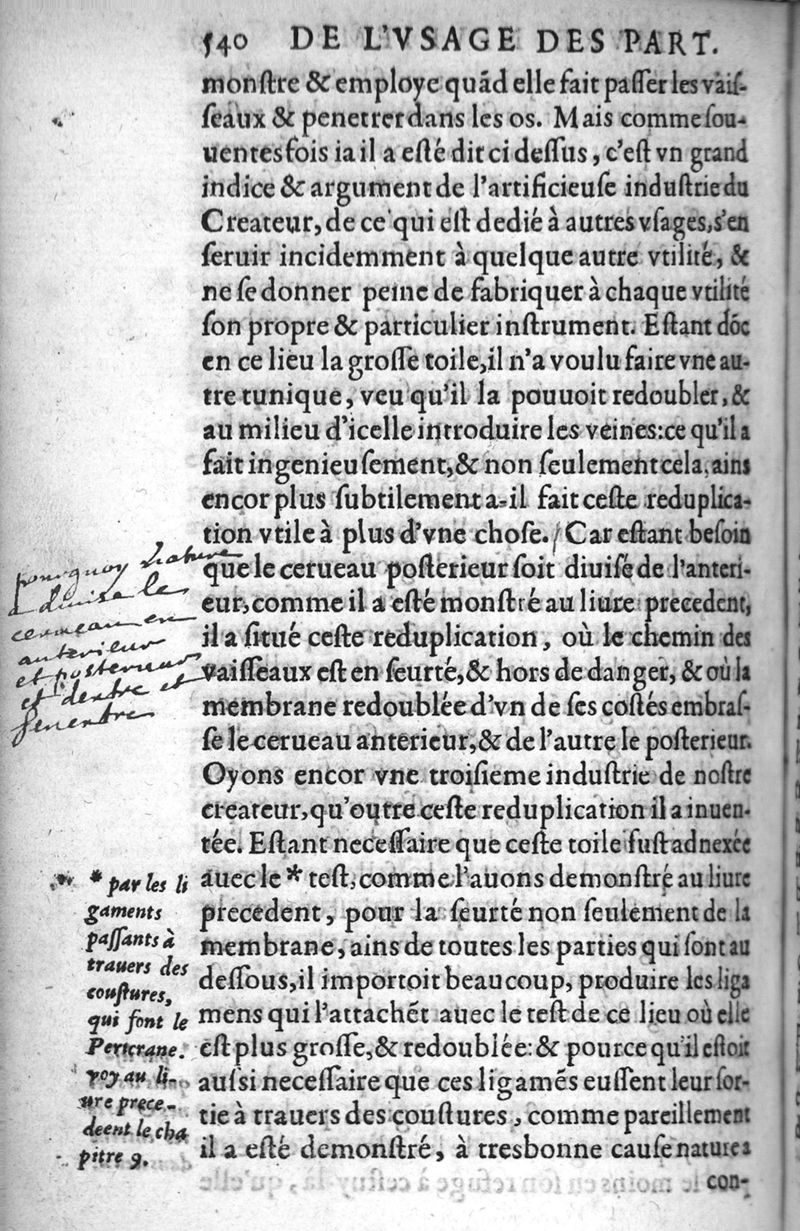 540 DE L'VSAGE DES PART.
monſtre & employe quãd elle fait paſſer les vaiſ-
ſeaux & penetrer dans les os. Mais comme ſou-
uentesfois ia il a eſté dit ci deſſus, c'eſt vn grand
indice & argument de l'artificieuſe induſtrie du
Createur, de ce qui eſt dedié à autres vſages, s'en
ſeruir incidemment à quelque autre vtilité, &
ne ſe donner peine de fabriquer à chaque vtilité
ſon propre & particulier inſtrument. Eſtant dõc
en ce lieu la groſſe toile, il n'a voulu faire vne au-
tre tunique, veu qu'il la pouuoit redoubler, &
au milieu d'icelle introduire les veines: ce qu'il a
fait ingenieuſement, & non ſeulement cela, ains
encor plus ſubtilement a-il fait ceſte reduplica-
tion vtile à plus d'vne choſe. / Car eſtant beſoin
que le cerueau poſterieur ſoit diuiſé de l'anteri-
eur, comme il a eſté monſtré au liure precedent,
il a ſitué ceſte reduplication, où le chemin des
vaiſſeaux eſt en ſeurté, & hors de danger, & où la
membrane redoublée d'vn de ſes coſtés embraſ-
ſe le cerueau anterieur, & de l'autre le poſterieur.
Oyons encor vne troiſieme induſtrie de noſtre
createur, qu'outre ceſte reduplication il a inuen-
tée. Eſtant neceſſaire que ceſte toile fuſt adnexée
auec le * teſt, comme l'auons demonſtré au liure
precedent, pour la ſeurté non ſeulement de la
membrane, ains de toutes les parties qui ſont au
deſſous, il importoit beaucoup, produire les liga
mens qui l'attachẽt auec le teſt de ce lieu où elle
eſt plus groſſe, & redoublée: & pource qu'il eſtoit
auſsi neceſſaire que ces ligamẽs euſſent leur ſor-
tie à trauers des couſtures, comme pareillement
il a eſté demonſtré, à tresbonne cauſe nature a
con-
pourquoy nature
a diuisé le
cerueau en
anterieur
et posterieur
et
* par les li
gaments
paſſants à
trauers des
couſtures,
qui font le
Pericrane.
voy au li-
ure prece-
deent le cha
pitre 9.